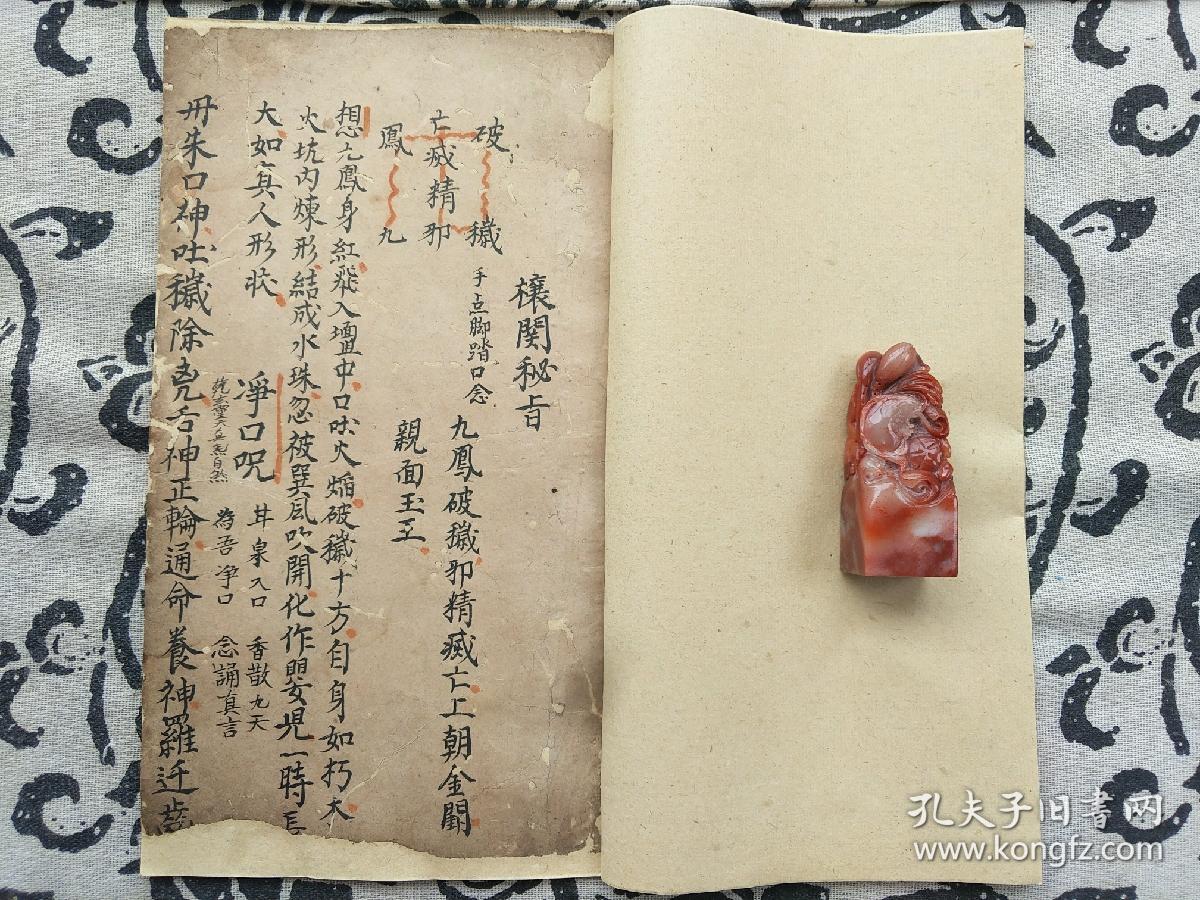 禳関秘旨
手点脚踏口念
九鳳破穢邪精滅亡上朝金闕
親面玉王
破穢
亡滅精邪
鳳九
想九鳳身紅飛入壇中口吐火焰破穢十方自身如朽木
火坑内煉形結成水珠忽被巽風吹開化作嬰児一時長
大如真人形状
凈口呪
甘泉入口
香散九天
為吾凈口
念誦真言
丹朱口神吐穢除兇舌神正輪通命養神羅迁歯
孔夫子旧书网
www.kongfz.com